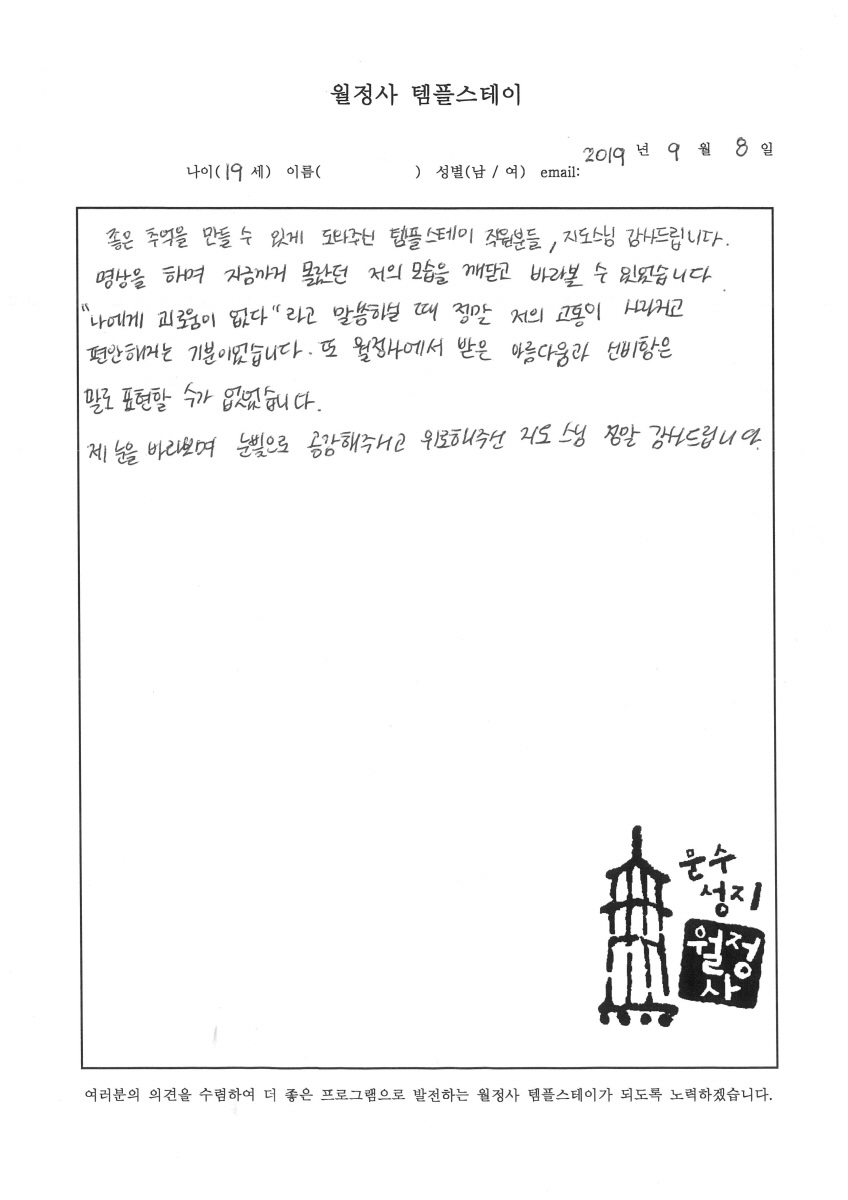 월정사 템플스테이
2019 년 9 월 8 일
나이( 19 세) 이름( ) 성별(남 / 여) email:
좋은 추억을 만들 수 있게 도와주신 템플스테이 직원분들, 지도스님 감사드립니다.
명상을 하며 지금까지 몰랐던 저의 모습을 깨닫고 바라볼 수 있었습니다
"나에게 괴로움이 없다" 라고 말씀하실 때 정말 저의 고통이 사라지고
편안해지는 기분이었습니다. 또 월정사에서 받은 아름다움과 신비함은
말로 표현할 수가 없었습니다.
제 눈을 바라보며 눈빛으로 공감해주시고 위로해주신 지도 스님 정말 감사드립니다.
문수
성지
월정
사
여러분의 의견을 수렴하여 더 좋은 프로그램으로 발전하는 월정사 템플스테이가 되도록 노력하겠습니다.